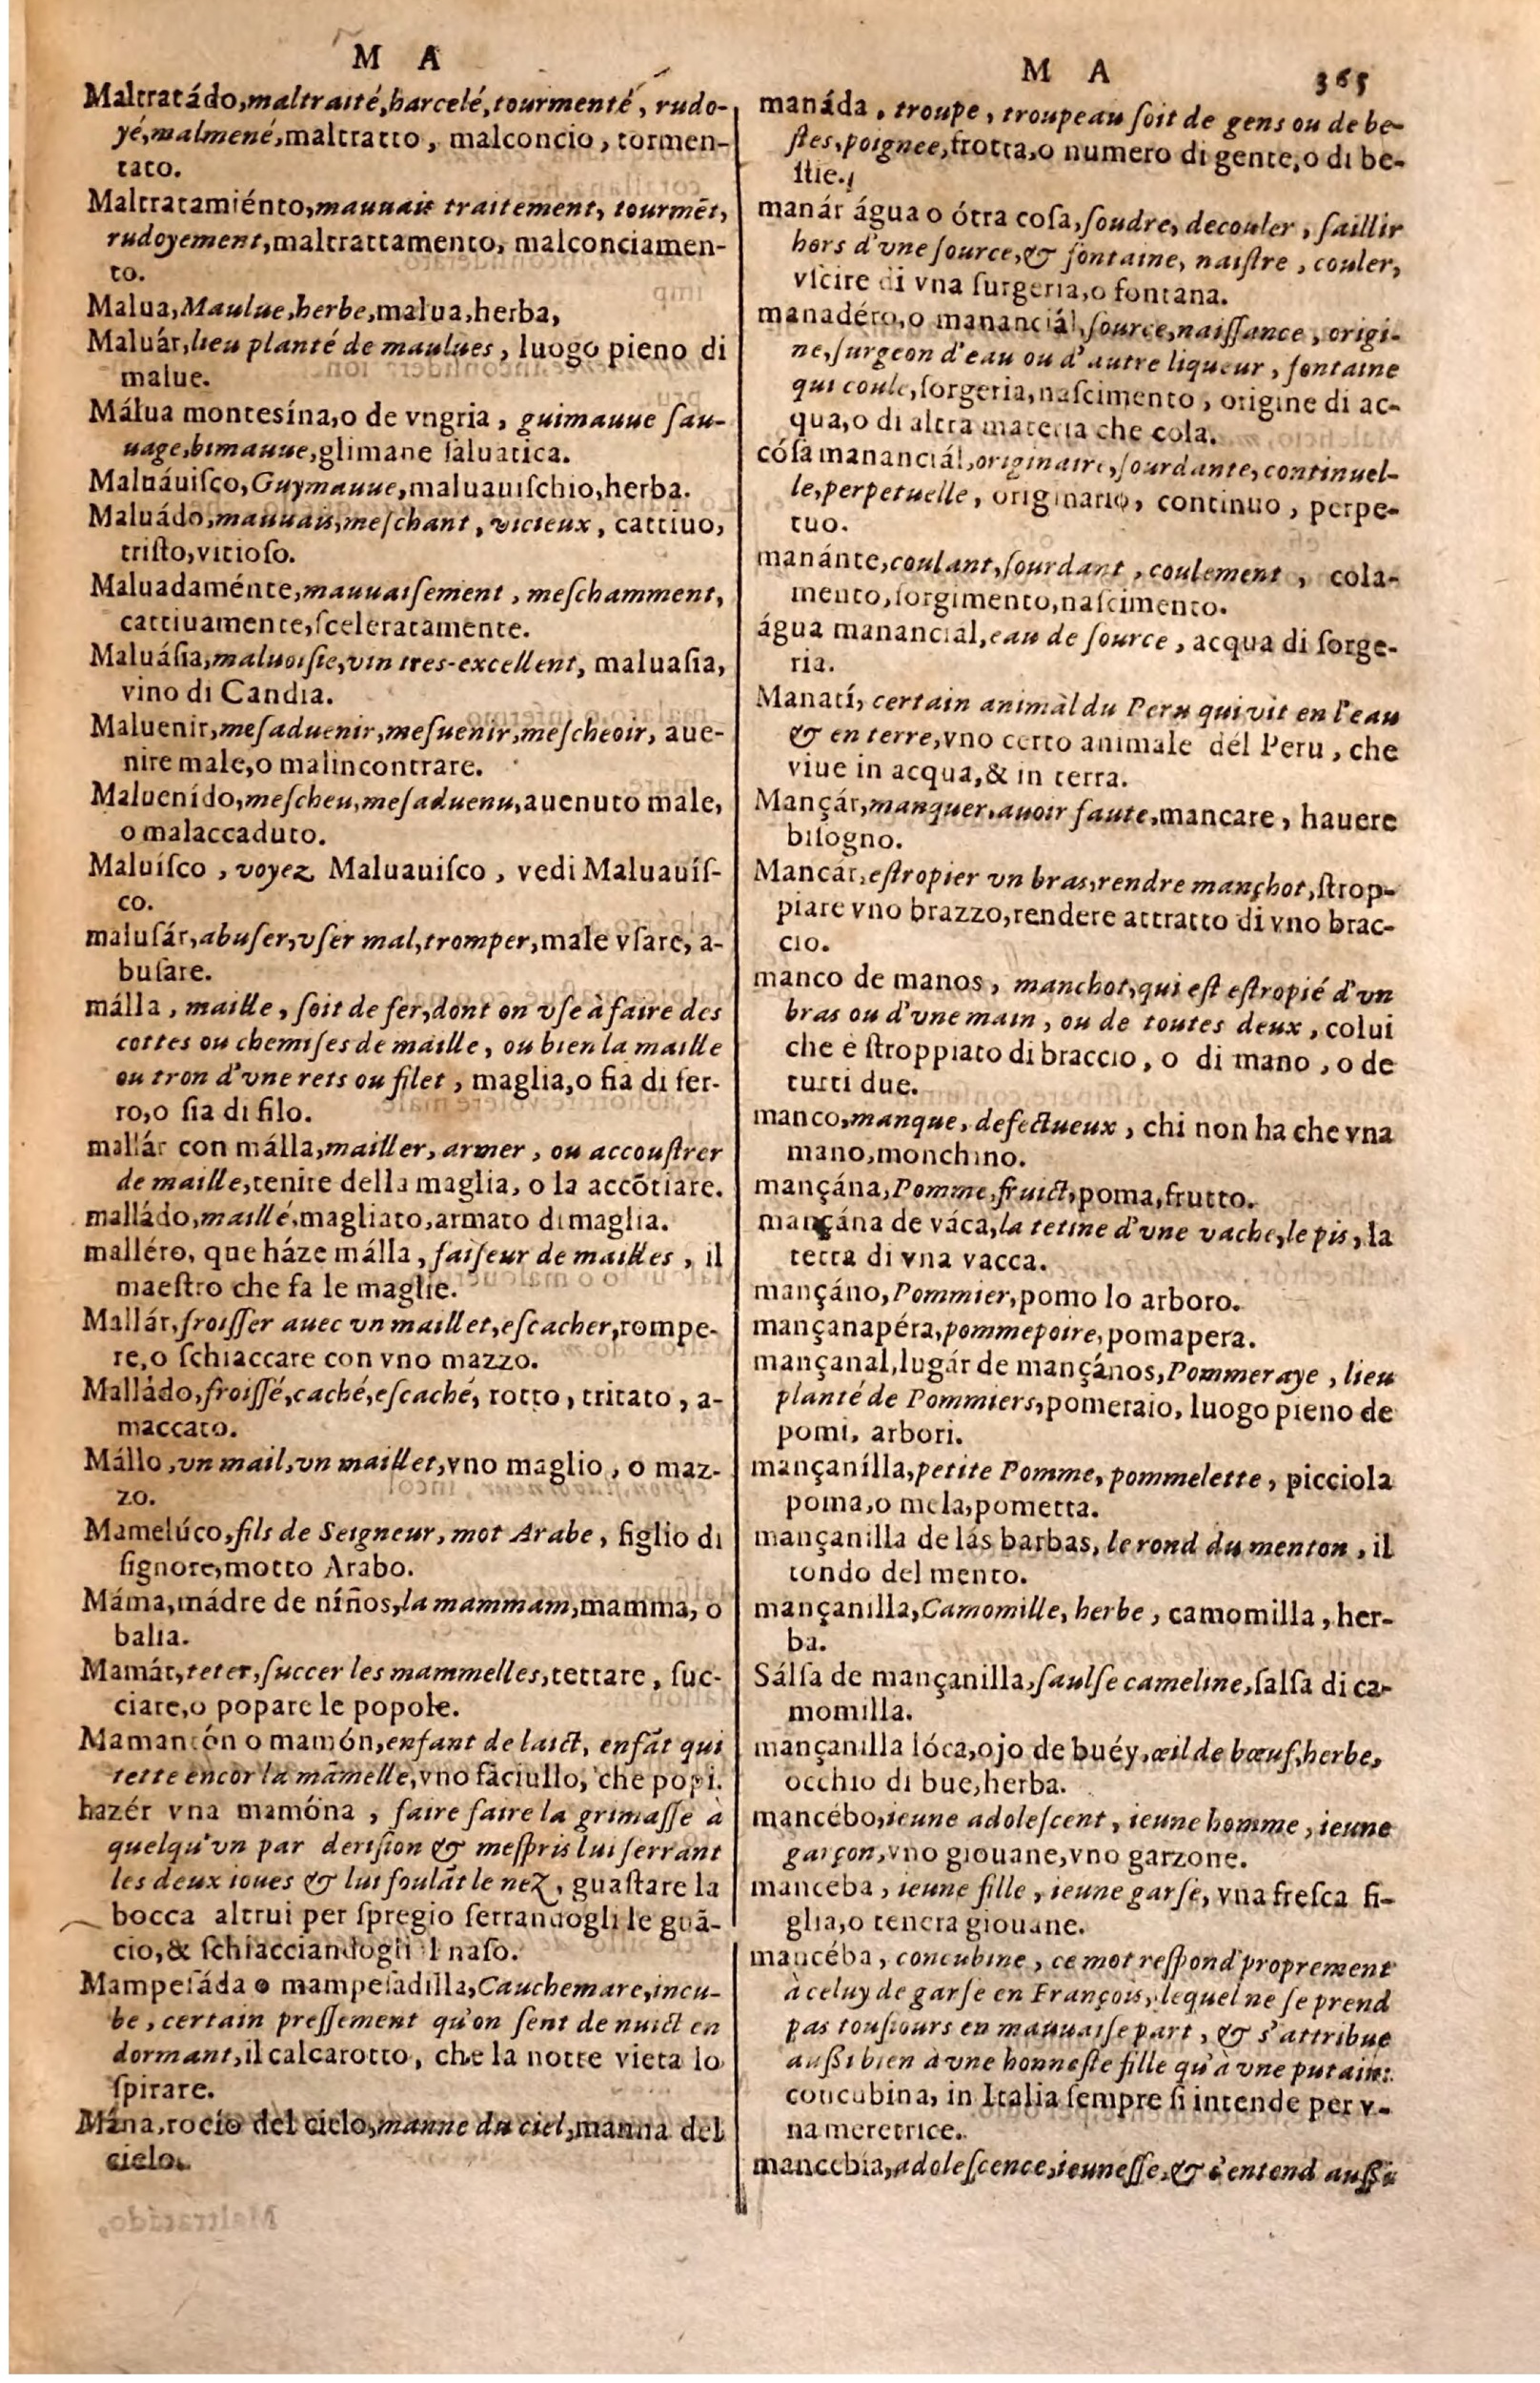 M A
Maltratádo, maltraité, harcelé, tourmenté, rudo-
yé, malmené, maltratto, malconcio, tormen-
tato.
Maltratamiénto, mauuais traitement, tourmẽt,
rudoyement, maltrattamento, malconciamen-
to.
Malua, Maulue, herbe, malua, herba,
Maluár, lieu planté de maulues, luogo pieno di
malue.
Málua montesína, o de vngria, guimauue ſau-
uage, bimauue, glimane ſaluatica.
Maluáuiſco, Guymauue, maluauiſchio, herba.
Maluádo, mauuais, meſchant, vicieux, cattiuo,
triſto, vitioſo.
Maluadaménte, mauuaiſement, meſchamment,
cattiuamente, ſceleratamente.
Maluáſia, maluoiſie, vin tres-excellent, maluaſia,
vino di Candia.
Maluenir, meſaduenir, meſuenir, meſcheoir, aue-
nire male, o malincontrare.
Maluenído, meſcheu, meſaduenu, auenuto male,
o malaccaduto.
Maluíſco, voyez Maluauiſco, vedi Maluauíſ-
co.
maluſár, abuſer, vſer mal, tromper, male vſare, a-
buſare.
málla, maille, ſoit de fer, dont on vſe à faire des
cottes ou chemiſes de maille, ou bien la maille
ou tron d'vne rets ou filet, maglia, o ſia di fer-
ro, o ſia di filo.
mallár con málla, mailler, armer, ou accouſtrer
de maille, tenire della maglia, o la accõtiare.
malládo, maillé, magliato, armato di maglia.
malléro, que háze málla, faiſeur de mailles, il
maeſtro che fa le maglie.
Mallár, froiſſer auec vn maillet, eſcacher, rompe-
re, o ſchiaccare con vno mazzo.
Malládo, froiſſé, caché, eſcaché, rotto, tritato, a-
maccato.
Mállo, vn mail, vn maillet, vno maglio, o maz-
zo.
Mamelúco, fils de Seigneur, mot Arabe, figlio di
ſignore, motto Arabo.
Máma, mádre de níños, la mammam, mamma, o
balia.
Mamár, teter, ſuccer les mammelles, tettare, ſuc-
ciare, o popare le popole.
Mamantón o mamón, enfant de laict, enfãt qui
tette encor la mãmelle, vno fãciullo, che popi.
hazér vna mamóna, faire faire la grimaſſe à
quelqu'vn par deriſion & meſpris lui ſerrant
les deux ioues & lui foulãt le nez, guaſtare la
bocca altrui per ſpregio ſerrandogli le guã-
cio, & ſchiacciandogli il naſo.
Mampeſáda o mampeſadilla, Cauchemare, incu-
be, certain preſſement qu'on ſent de nuict en
dormant, il calcarotto, che la notte vieta lo
ſpirare.
Mána, rocío del cielo, manne du ciel, manna del
cielo.
M A 365
manáda, troupe, troupeau ſoit de gens ou de be-
ſtes, poignee, frotta, o numero di gente, o di be-
ſtie.
manár água o ótra coſa, ſoudre, decouler, ſaillir
hors d'vne ſource, & fontaine, naiſtre, couler,
vſcire di vna ſurgeria, o fontana.
manadéro, o mananciál, ſource, naiſſance, origi-
ne, ſurgeon d'eau ou d'autre liqueur, fontaine
qui coule, ſorgeria, naſcimento, origine di ac-
qua, o di altra materia che cola.
cóſa mananciál, originaire, ſourdante, continuel-
le, perpetuelle, originario, continuo, perpe-
tuo.
manánte, coulant, ſourdant, coulement, cola-
mento, ſorgimento, naſcimento.
água manancial, eau de ſource, acqua di ſorge-
ria.
Manatí, certain animal du Peru qui vit en l'eau
& en terre, vno certo animale del Peru, che
viue in acqua, & in terra.
Mançár, manquer, auoir faute, mancare, hauere
biſogno.
Mancár, eſtropier vn bras, rendre mançhot, ſtrop-
piare vno brazzo, rendere attratto di vno brac-
cio.
manco de manos, manchot, qui eſt eſtropié d'vn
bras ou d'vne main, ou de toutes deux, colui
che è ſtroppiato di braccio, o di mano, o de
tutti due.
manco, manque, defectueux, chi non ha che vna
mano, monchino.
mançána, Pomme, fruict, poma, frutto.
mançána de váca, la tetine d'vne vache, le pis, la
tetta di vna vacca.
mançáno, Pommier, pomo lo arboro.
mançanapéra, pommepoire, pomapera.
mançanal, lugár de mançános, Pommeraye, lieu
planté de Pommiers, pomeraio, luogo pieno de
pomi, arbori.
mançanílla, petite Pomme, pommelette, picciola
poma, o mela, pometta.
mançanilla de lás barbas, le rond du menton, il
tondo del mento.
mançanilla, Camomille, herbe, camomilla, her-
ba.
Sálſa de mançanilla, ſaulſe cameline, ſalſa di ca-
momilla.
mançanilla lóca, ojo de buéy, œil de bœuf, herbe,
occhio di bue, herba.
mancébo, ieune adoleſcent, ieune homme, ieune
garçon, vno giouane, vno garzone.
manceba, ieune fille, ieune garſe, vna freſca fi-
glia, o tenera giouane.
mancéba, concubine, ce mot reſpond proprement
à celuy de garſe en François, lequel ne ſe prend
pas touſiours en mauuaiſe part, & s'attribue
auſſi bien à vne honneſte fille qu'à vne putain:
concubina, in Italia ſempre ſi intende per v-
na meretrice.
mancebía, adoleſcence, ieuneſſe, & s'entend auſſi